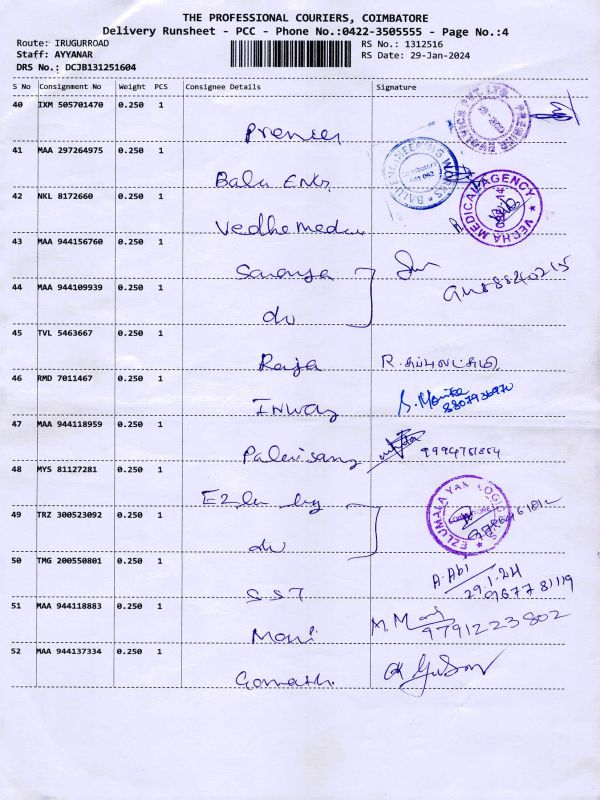 THE PROFESSIONAL COURIERS, COIMBATORE
Delivery Runsheet - PCC - Phone No.:0422-3505555 - Page No.:4
Route: IRUGURROAD
RS No.: 1312516
Staff: AYYANAR
RS Date: 29-Jan-2024
DRS No.: DCJB131251604
S No Consignment No Weight PCS Consignee Details Signature
40 IXM 505701470 0.250 1
Premier
41 MAA 297264975 0.250 1
Bala Eng.
42 NKL 8172660 0.250 1
VEDHA MEDICAL AGENCY
43 MAA 944156760 0.250 1
Saranya
44 MAA 109939 0.250 1
do
45 TVL 5463667 0.250 1
Raja R.
46 RMD 7011467 0.250 1
47 MAA 944118959 0.250 1
9994751854
48 MYS 81127281 0.250 1
49 TRZ 300523092 0.250 1
do
50 TMG 200550801 0.250 1
A. Abi
29.1.24
96778 1119
SST
51 MAA 944118883 0.250 1
M. M
9791223802
Mani
52 MAA 944137334 0.250 1
Gomathi